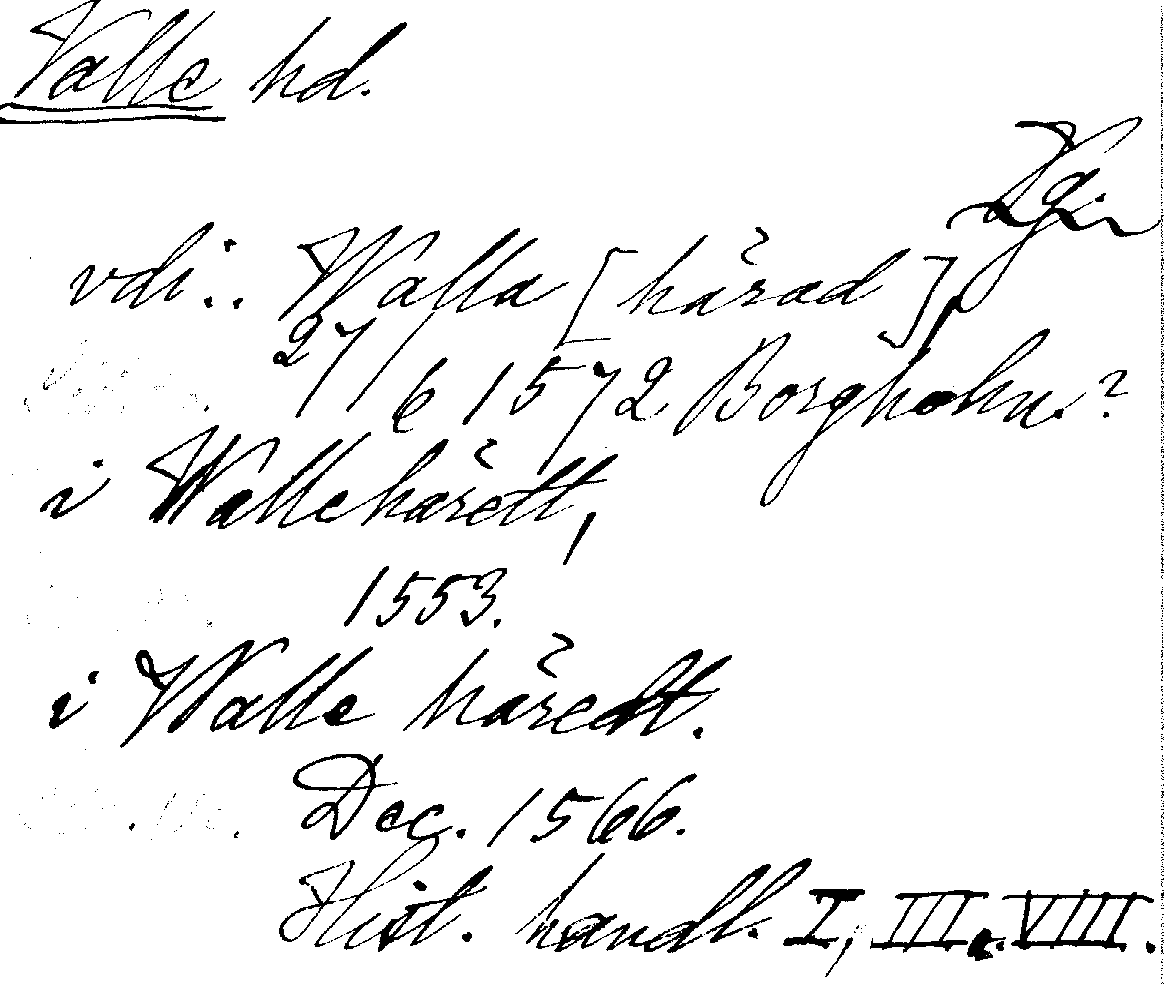 Valle hd.
Vgl.
vdi.. Walla [härad],
27/6 1572 Borgholm?
i Wallehärett,
1553.
i Walle häredt.
Dec. 1566.
Hist. handl. I, III, VIII.